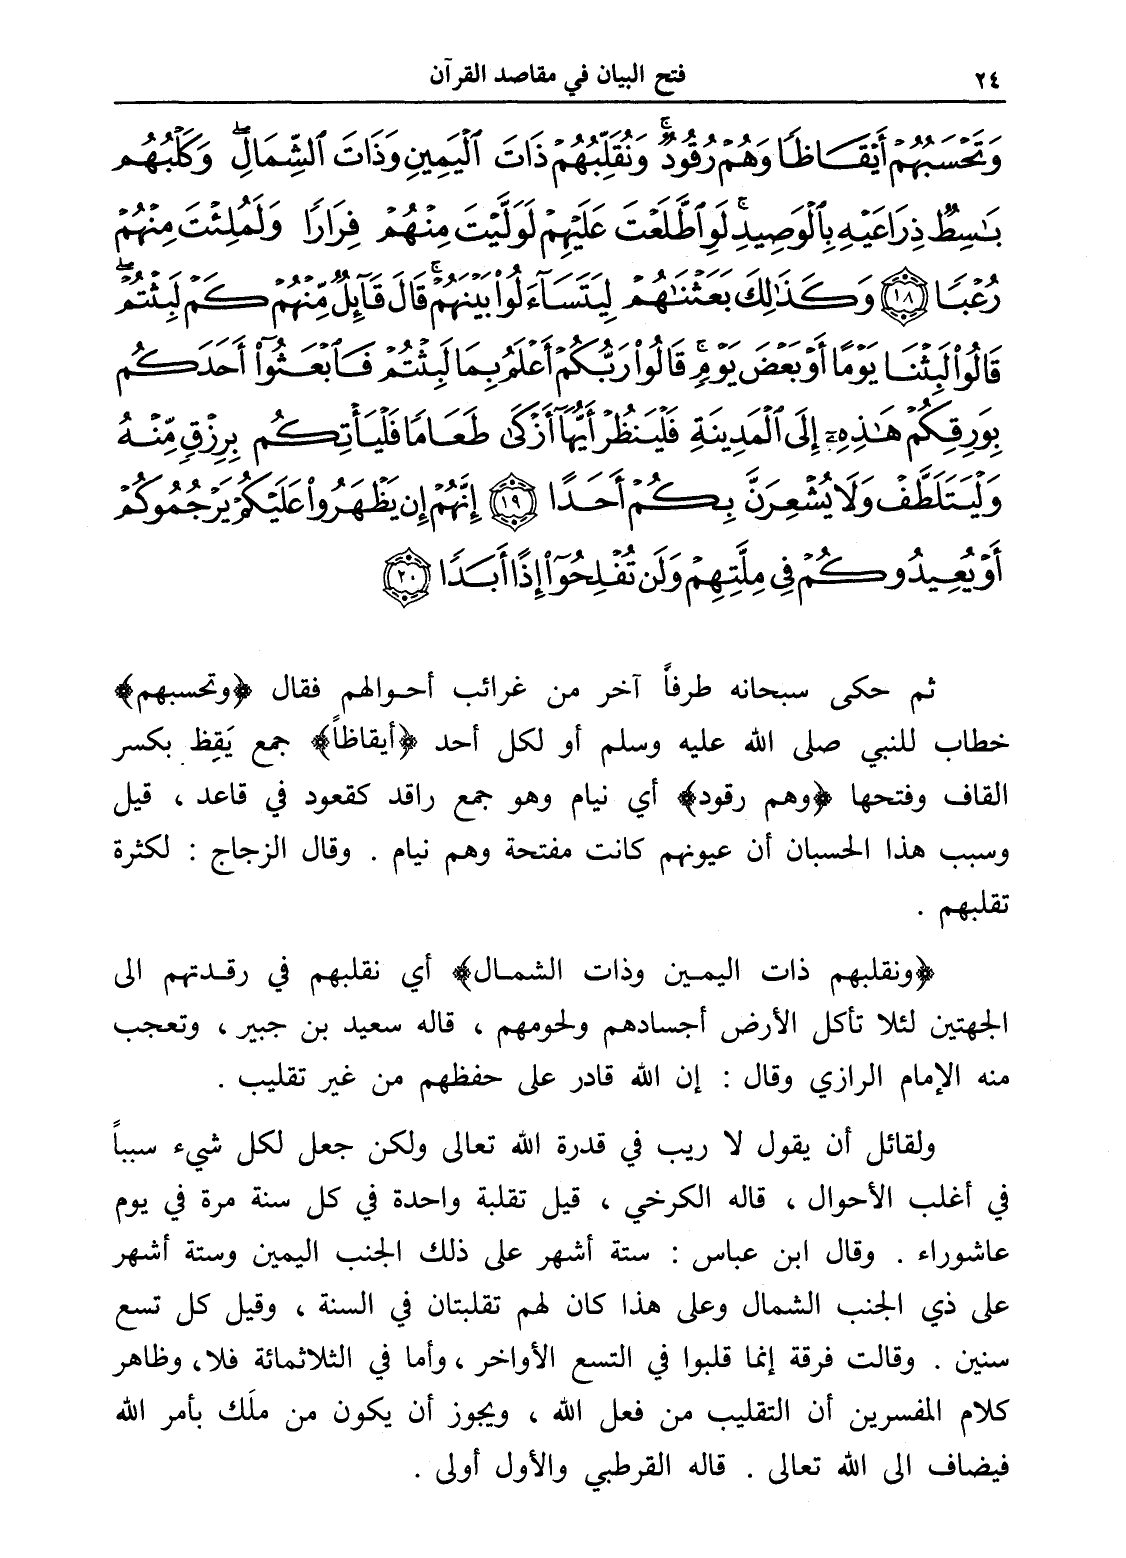 ٢٤ فتح البيان في مقاصد القرآن
وَتَحْسَبُهُمْ أَيْقَاظًا وَهُمْ رُقُودٌ ۚ وَنُقَلِّبُهُمْ ذَاتَ ٱلْيَمِينِ وَذَاتَ ٱلشِّمَالِ ۖ وَكَلْبُهُم
بَٰسِطٌ ذِرَاعَيْهِ بِٱلْوَصِيدِ ۚ لَوِ ٱطَّلَعْتَ عَلَيْهِمْ لَوَلَّيْتَ مِنْهُمْ فِرَارًا وَلَمُلِئْتَ مِنْهُمْ
رُعْبًا ١٨ وَكَذَٰلِكَ بَعَثْنَٰهُمْ لِيَتَسَآءَلُوا۟ بَيْنَهُمْ ۚ قَالَ قَآئِلٌ مِّنْهُمْ كَمْ لَبِثْتُمْ ۖ
قَالُوا۟ لَبِثْنَا يَوْمًا أَوْ بَعْضَ يَوْمٍ ۚ قَالُوا۟ رَبُّكُمْ أَعْلَمُ بِمَا لَبِثْتُمْ فَٱبْعَثُوٓا۟ أَحَدَكُم
بِوَرِقِكُمْ هَٰذِهِۦٓ إِلَى ٱلْمَدِينَةِ فَلْيَنظُرْ أَيُّهَآ أَزْكَىٰ طَعَامًا فَلْيَأْتِكُم بِرِزْقٍ مِّنْهُ
وَلْيَتَلَطَّفْ وَلَا يُشْعِرَنَّ بِكُمْ أَحَدًا ١٩ إِنَّهُمْ إِن يَظْهَرُوا۟ عَلَيْكُمْ يَرْجُمُوكُمْ
أَوْ يُعِيدُوكُمْ فِى مِلَّتِهِمْ وَلَن تُفْلِحُوٓا۟ إِذًا أَبَدًا ٢٠
ثم حكى سبحانه طرفاً آخر من غرائب أحوالهم فقال ﴿وتحسبهم﴾
خطاب للنبي صلى الله عليه وسلم أو لكل أحد ﴿أيقاظاً﴾ جمع يَقِظ بكسر
القاف وفتحها ﴿وهم رقود﴾ أي نيام وهو جمع راقد كقعود في قاعد ، قيل
وسبب هذا الحسبان أن عيونهم كانت مفتحة وهم نيام . وقال الزجاج : لكثرة
تقلبهم .
﴿ونقلبهم ذات اليمين وذات الشمال﴾ أي نقلبهم في رقدتهم الى
الجهتين لئلا تأكل الأرض أجسادهم ولحومهم ، قاله سعيد بن جبير ، وتعجب
منه الإمام الرازي وقال : إن الله قادر على حفظهم من غير تقليب .
ولقائل أن يقول لا ريب في قدرة الله تعالى ولكن جعل لكل شيء سبباً
في أغلب الأحوال ، قاله الكرخي ، قيل تقلبة واحدة في كل سنة مرة في يوم
عاشوراء . وقال ابن عباس : ستة أشهر على ذلك الجنب اليمين وستة أشهر
على ذي الجنب الشمال وعلى هذا كان لهم تقلبتان في السنة ، وقيل كل تسع
سنين . وقالت فرقة إنما قلبوا في التسع الأواخر ، وأما في الثلاثمائة فلا، وظاهر
كلام المفسرين أن التقليب من فعل الله ، ويجوز أن يكون من ملَك بأمر الله
فيضاف الى الله تعالى . قاله القرطبي والأول أولى .